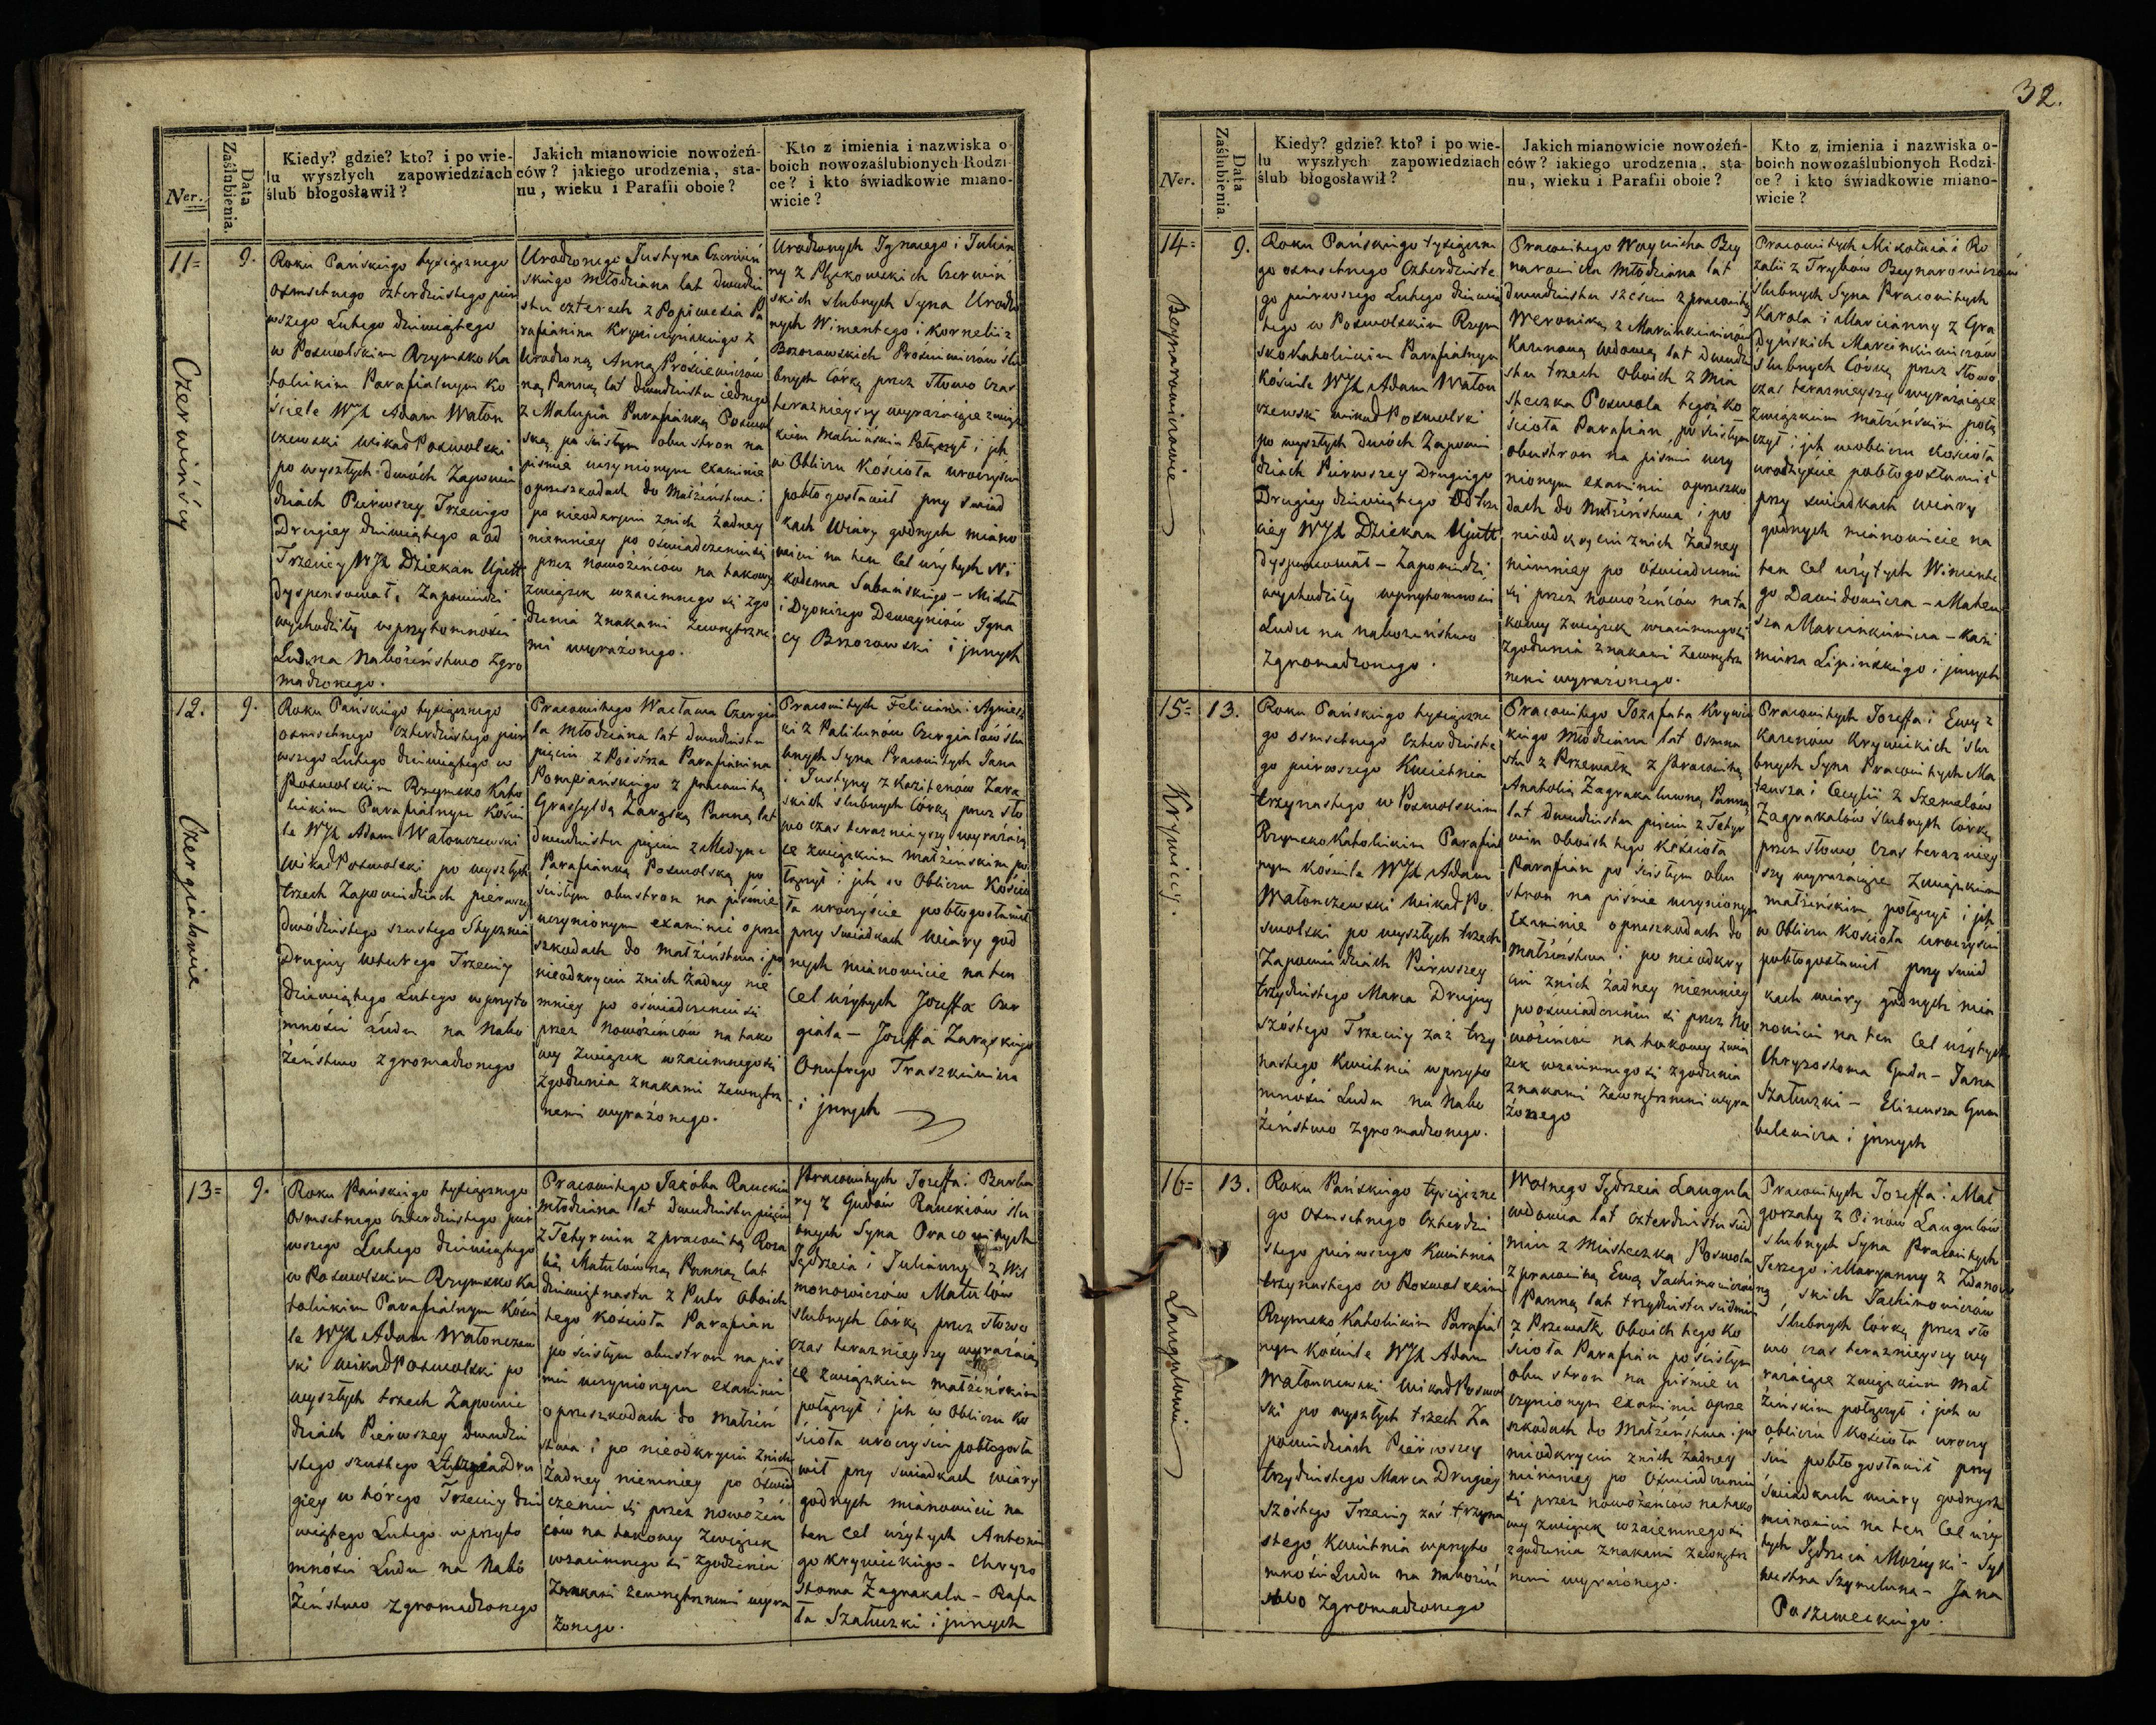 Ner.
Data
Zaślubienia.
Kiedy? gdzie? kto? i po wie-
lu wyszłych zapowiedziach
ślub błogosławił?
Jakich mianowicie nowożeń-
ców? jakiego urodzenia, sta-
nu, wieku i Parafii oboie?
Kto z imienia i nazwiska o
boich nowozaślubionych Rodzi-
ce? i kto świadkowie miano-
wicie?
11=
9.
Czerwińscy
Roku Pańskiego tysiącznego
osmsetnego czterdziestego pier
wszego Lutego dziewiątego
w Poswolskim Rzymsko Ka
tolickim Parafialnym Ko
ściele WJX Adam Waton
czewski Wikad Poswolski
po wyszłych dwóch Zapowie
dziach Pierwszey Trzeciego
Drugiey dziewiątego a od
Trzeciey WJX Dziekan Upitt
dyspensował, Zapowiedzi
wychodziły w przytomności
Ludu na Nabożeństwo Zgro
madzonego.
Urodzonego Justyna Czerwiń
skiego Młodziana lat dwudzie
stu czterech z Popiwesia Pa
rafianina Krynicżyńskiego z
Urodzoną Anną Próśiewiczów
ną Panną lat dwudziestu iednego
z Malupia Parafianką Poswol
ską, po ścisłym obu stron na
pismie uczynionym examinie
o przeszkodach do Małżeństwa i
po nieodkryciu z nich Żadney
niemniey po oświadczeniu się
przez nowożeńcow na takowy
Związek wzaiemnego się zgo
dzenia Znakami zewnętrzne
mi wyrażonego.
Urodzonych Ignacego i Julian
ny z Płżkowskich Czerwiń
skich slubnych Syna Urodzo
nych Wincentego i Kornelii z
Brzozowskich Próśiewiczow ślu
bnych Córkę przez Słowo Czas
terazniejszy wyrażaiące związ
kiem Małżeńskim Połączył i jch
w Obliczu Kościoła uroczyscie
pobłogosławił przy świad
kach Wiary godnych miano
wicie na ten Cel użytych Ni
kodema Sabańskiego - Michała
i Dyonizego Dowoyniów Igna
cy Brzozowski i jnnych
12.
9.
Czergiałowie
Roku Pańskiego tysiącznego
osmsetnego Czterdziestego pier
wszego Lutego dziewiątego w
Poswolskim Rzymsko Kato
lickim Parafialnym Kości
le WJX Adam Watonczewski
Wikad Poswolski po wyszłych
trzech Zapowiedziach pierwszey
dwódziestego szostego Stycznia
Drugiey wtórego Trzeciey
dziewiątego Lutego w przyto
mności Ludu na Nabo
żeństwo zgromadzonego
Pracowitego Wacława Czergia
ła Młodziana lat dwudziestu
pięciu z Poistrza Parafianina
Pompiańskiego z pracowitą
Grasyldą Zarąską Panną lat
dwudziestu pięciu z Medyni
Parafianką Poswolską po
ścisłym obustron na piśmie
uczynionym examinie o prze
szkodach do małżeństwa i po
nieodkryciu z nich Żadney nie
mniey po oświadczeniu się
przez Nowożeńców na tako
wy związek wzaiemnego się
zgodzenia znakami zewnętrz
nemi wyrażonego.
Pracowitych Feliciana i Agniesz
ki z Palilunów Czergiałów ślu
bnych Syna Pracowitych Jana
i Justyny z Kazitenów Zarą
skich ślubnych Córkę przez sło
wo czas teraznieyszy wyrażaią
ce związkiem małżeńskim po
łączył i jch w Obliczu Kościo
ła uroczyście pobłogosławił
przy świadkach Wiary god
nych mianowicie na ten
Cel użytych Jozeffa Czer
giała - Jozeffa Zarąskiego
Onufrego Traszkiewicza
i jnnych
13=
9.
Roku Pańskiego tysiącznego
Osmsetnego Czterdziestego pier
wszego Lutego dziewiątego
w Poswolskim Rzymsko Ka
tolickim Parafialnym Kości
le WJX Adam Watonczew
ski Wikad Poswolski po
wyszłych trzech Zapowie
dziach Pierwszey dwudzie
stego szostego Stycznia Dru
giey wtórego Trzeciey dzie
wiątego Lutego w przyto
mności Ludu na Nabo
żeństwo zgromadzonego
Pracowitego Jakóba Rauckia
młodziana lat dwudziestu pięciu
z Tetyrwin z pracowitą Roza
lią Matulówną Panną lat
dziewiętnastu z Putr Oboich
tego Kościoła Parafian
po ścisłym obustron na piś
mie uczynionym examinie
o przeszkodach do małżeń
stwa i po nieodkryciu z nich
Żadney niemniey po Oświad
czeniu się przez nowożeń
ców na takowy Związek
wzaiemnego się zgodzenia
Znakami zewnętrznemi wyra
żonego.
Pracowitych Jozeffa i Barba
ry z Gudów Rauckiów ślu
bnych Syna Pracowitych
Jędrzeia i Julianny z Wil
monowiczów Matulów
slubnych Córkę przez słowo
czas teraznieyszy wyrażaią
ce związkiem małżeńskim
połączył i jch w Obliczu Ko
ścioła uroczyscie pobłogosła
wił przy świadkach wiary
godnych mianowicie na
ten Cel użytych Antoni
go Krywickiego - Chryzo
stoma Zagrakala - Rafa
ła Szałuzki i jnnych
32.
Ner.
Data
Zaślubienia.
Kiedy? gdzie? kto? i po wie-
lu wyszłych zapowiedziach
ślub błogosławił?
Jakich mianowicie nowożeń-
ców? iakiego urodzenia, sta-
nu, wieku i Parafii oboie?
Kto z imienia i nazwiska o-
boich nowozaślubionych Rodzi-
ce? i kto świadkowie miano-
wicie?
14=
9.
Beynarowiczowie
Roku Pańskiego tysiączne
go osmsetnego Czterdzieste
go pierwszego Lutego dziewią
tego w Poswolskim Rzym
sko Katolickim Parafialnym
Kościele WJX Adam Waton
czewski Wikad Poswolski
po wyszłych dwóch Zapowie
dziach Pierwszey Drugiego
Drugiey dziewiątego Od trze
ciey WJX Dziekan Upitt
dyspensował - Zapowiedzi
wychodziły w przytomności
Ludu na nabożeństwo
Zgromadzonego.
Pracowitego Woyciecha Bey
narowicza Młodziana lat
dwudziestu sześciu z pracowitą
Weroniką z Marcinkiewiczów
Karenową wdową lat dwudzie
stu trzech Oboich z Mia
steczka Poswola tegoż Ko
ścioła Parafian, po ścisłym
obustron na piśmie uczy
nionym examinie o przeszko
dach do Małżeństwa i po
nieodkryciu z nich Żadney
niemniey po Oświadczeniu
się przez nowożeńców na ta
kowy związek wzaiemnego się
Zgodzenia znakami Zewnętrz
nemi wyrażonego.
Pracowitych Mikołaia i Ro
zalii z Trybów Beynarowiczów
slubnych Syna Pracowitych
Karola i Marcianny z Gra
dyńskich Marcinkiewiczów
Slubnych Córkę przez słowo
czas teraznieyszy wyrażaiące
Związkiem małżeńskim połą
czył i jch w obliczu Kościoła
uroczyście pobłogosławił
przy świadkach wiary
godnych mianowicie na
ten Cel użytych Wincente
go Dawidowicza - Mateu
sza Marcinkiewicza - Kazi
mierza Lipińskiego i jnnych
15=
13.
Krywiccy.
Roku Pańskiego tysiączne
go osmsetnego Czterdzieste
go pierwszego Kwietnia
trzynastego w Poswolskim
Rzymsko Katolickim Parafial
nym Kościele WJX Adam
Watonczewski Wikad Po
swolski po wyszłych trzech
Zapowiedziach Pierwszey
trzydziestego Marca Drugiey
szóstego Trzeciey zaś trzy
nastego Kwietnia w przyto
mności Ludu na Nabo
żeństwo zgromadzonego.
Pracowitego Jozafata Krywic
kiego Młodziana lat Osmna
stu z Przewałk z Pracowitą
Anatolią Zagrakaluwną Panną
lat dwudziestu pięciu z Tetyr
win Oboich tego Kościoła
Parafian po ścisłym obu
stron na piśmie uczynionym
Examinie o przeszkodach do
małżeństwa i po nieodkry
ciu z nich Żadney niemniey
po oświadczeniu się przez No
wożeńców na takowy zwią
zek wzaiemnego się zgodzenia
znakami Zewnętrznemi wyra
żonego
Pracowitych Jozeffa i Ewy z
Karenów Krywickich ślu
bnych Syna Pracowitych Ma
teusza i Cecylii z Szemelów
Zagrakalów Slubnych Córkę
przez słowo Czas teraznieyszy
szy wyrażaiące Związkiem
małżeńskim, połączył i jch
w Obliczu Kościoła uroczyscie
pobłogosławił przy świad
kach wiary godnych mia
nowicie na ten Cel użytych
Chryzostoma Gudu - Jana
Szałuzki - Elizeusza Gum
balewicza i jnnych
16=
13.
Laugułowie
Roku Pańskiego tysiączne
go Osmsetnego Czterdzie
stego pierwszego Kwietnia
trzynastego w Poswolskim
Rzymsko Katolickim Parafial
nym Kościele WJX Adam
Watonczewski Wikad Poswol
ski po wyszłych trzech Za
powiedziach Pierwszey
trzydziestego Marca Drugiey
Szóstego Trzeciey zaś trzyna
stego Kwietnia w przyto
mności Ludu na Nabożeń
stwo Zgromadzonego
Wolnego Jędrzeia Lauguła
wdowca lat Czterdziestu sied
miu z Miasteczka Poswola
z pracowitą Ewą Jachimowiczówną
Panną lat trzydziestu siedmiu
z Przewałk Oboich tego Ko
ścioła Parafian po ścisłym
obu stron na piśmie u
czynionym examinie o prze
szkodach do Małżeństwa i po
nieodkryciu z nich Żadney
niemniey po Oświadczeniu
się przez nowożeńców na tako
wy związek wzaiemnego się
zgodzenia znakami zewnętrz
nemi wyrażonego.
Pracowitych Jozeffa i Mał
gorzaty z Pinów Laugułów
slubnych Syna Pracowitych
Jerzego i Maryanny z Zdanow
skich Jachimowiczów
Slubnych Córkę przez sło
wo czas teraznieyszy wy
rażaiące związkiem Mał
żeńskim połączył i jch w
obliczu Kościoła uroczy
ście pobłogosławił przy
świadkach wiary godnych
mianowicie na ten Cel uży
tych Jędrzeia Mozyki - Syl
westra Szymeluna - Jana
Poszweckiego.